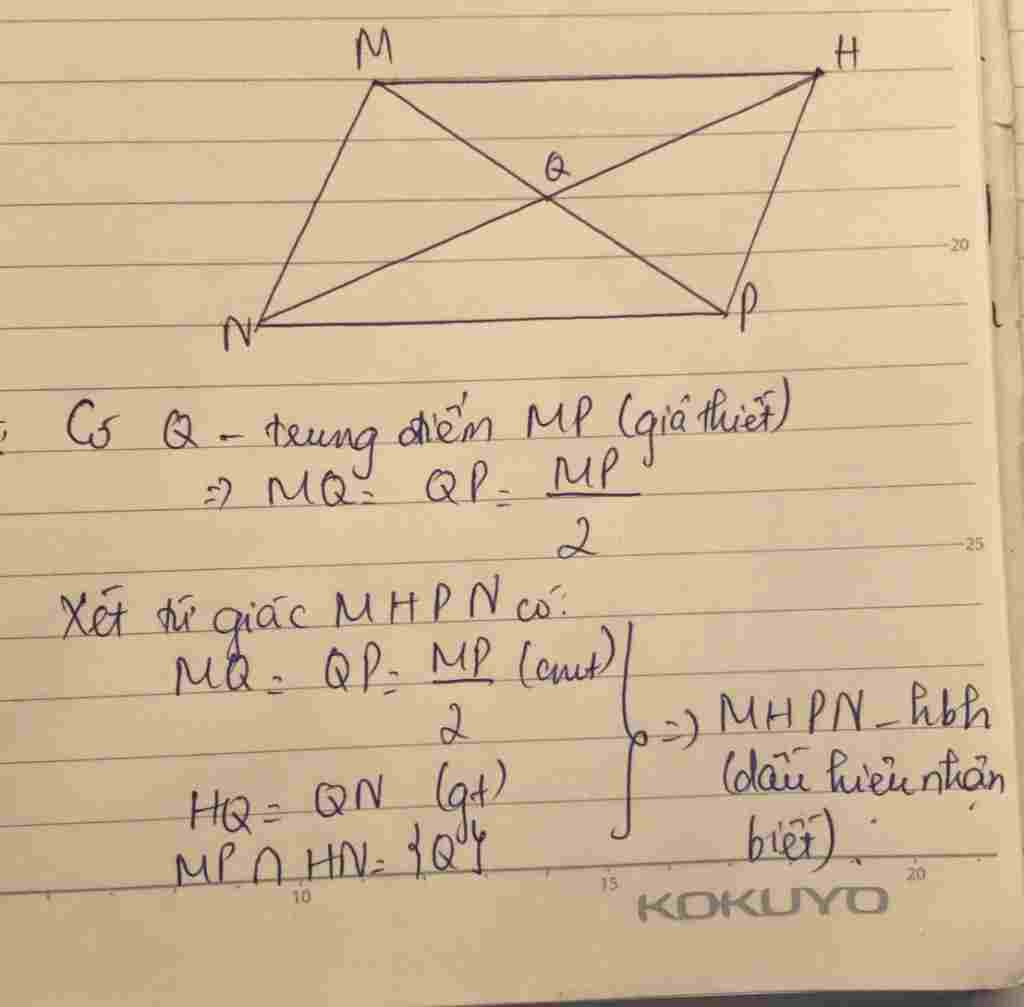 M
H
Q
20
N
P
: Có Q - trung điểm MP (giả thiết)
=> MQ = QP = MP/2
25
Xét tứ giác MHPN có:
MQ = QP = MP/2 (cmt)
HQ = QN (gt)
MP ∩ HN = {Q}
=> MHPN - hbh
(dấu hiệu nhận
biết).
10
15
20
KOKUYO